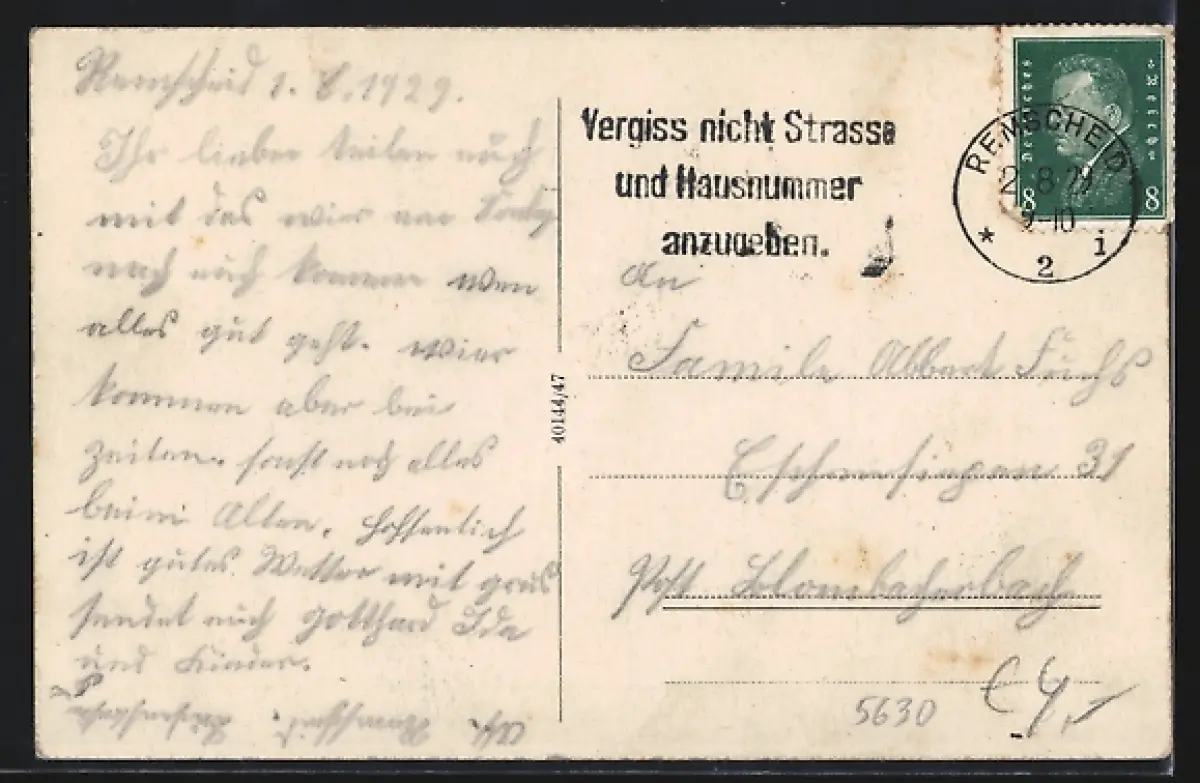 Remscheid 1. 8. 1929.
Ihr lieben teilen euch
mit das wier am Sontag
nach euch kommen wen
alles gut geht. wier
kommen aber bei
zeiten. sonst noch alles
beim Alten. Hoffentlich
ist gutes Wetter mit grus
sendet euch Gotthard Ida
und Kinder.
Vergiss nicht Strasse
und Hausnummer
anzugeben.
Deutsches Reich
8 8
REMSCHEID
2.8.29
9-10
* 2 i
An
Familie Fuchs
31
Post Blombacherbach
40144/47
5630
€ 4,-